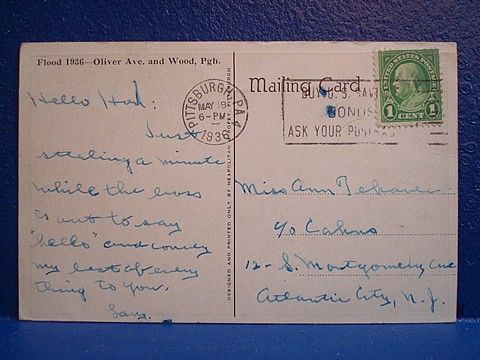 Flood 1936—Oliver Ave. and Wood, Pgh.
Hello Hon:
Just
stealing a minute
while the boss
is out to say
"hello" and convey
my best of every
thing to you.
Sam.
DESIGNED AND PRINTED ONLY BY NEAPOLITAN PITTSBURGH
PITTSBURGH, PA. 4
MAY 18
6-PM
1936
Mailing Card
BUY U.S. SAV
BONDS
ASK YOUR POSTM
UNITED STATES POSTAGE
1 CENT 1
Miss Ann
c/o Cahns
12- S. Montgomery Ave
Atlantic City, N.J.